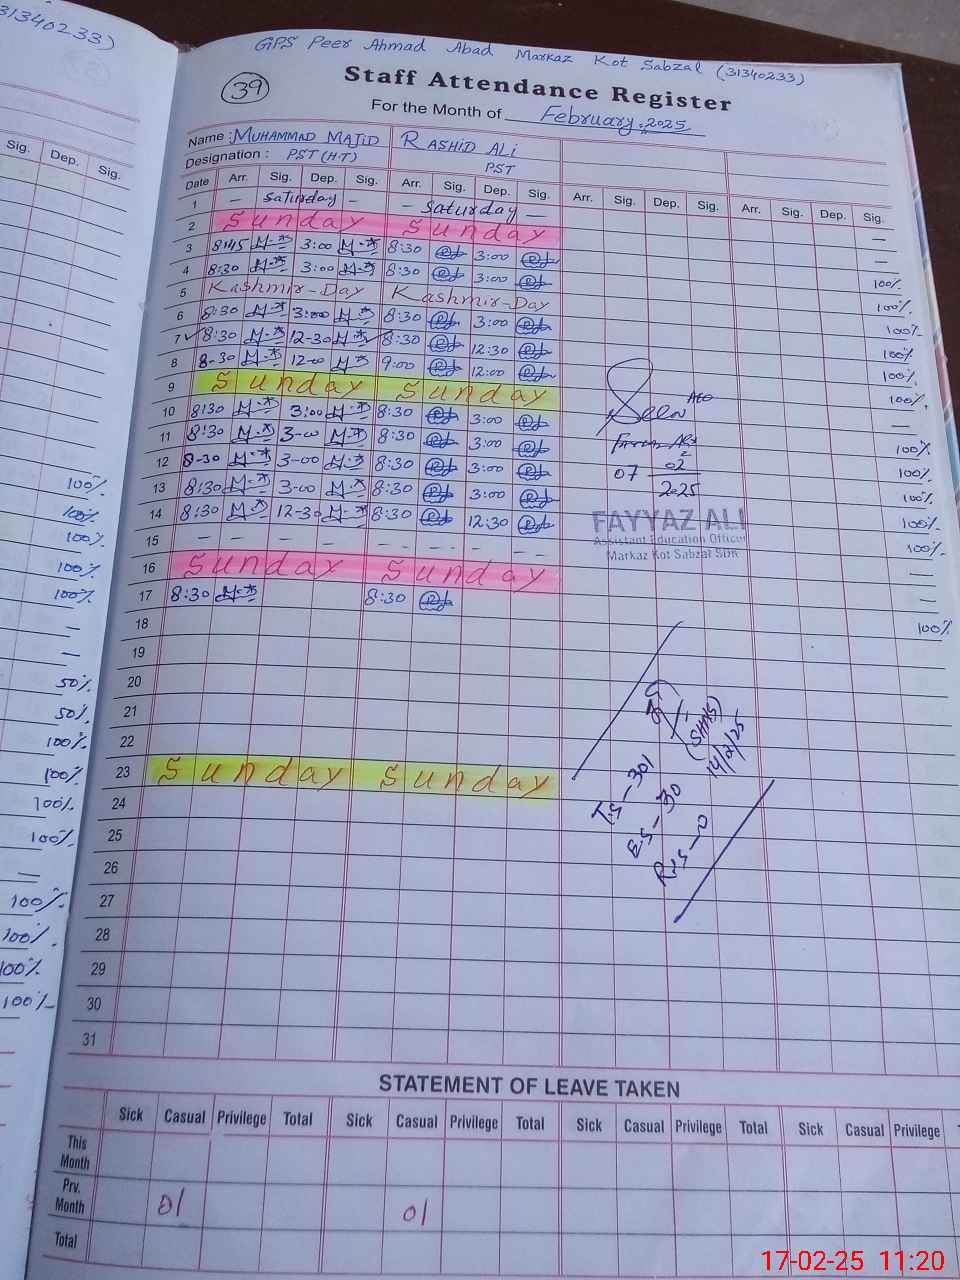 31340233)
GPS Peer Ahmad Abad Markaz Kot Sabzal (31340233)
39
Staff Attendance Register
For the Month of February, 2025
Name : MUHAMMAD MAJID RASHID ALI
Designation : PST (H.T) PST
Sig. Dep. Sig.
Date Arr. Sig. Dep. Sig. Arr. Sig. Dep. Sig. Arr. Sig. Dep. Sig. Arr. Sig. Dep. Sig.
1 - Saturday - - Saturday - —
2 Sunday Sunday —
3 8:45 3:00 8:30 3:00 100%
4 8:30 3:00 8:30 3:00 100%
5 Kashmir-Day Kashmir-Day 100%
6 8:30 3:00 8:30 3:00 100%
7 8:30 12-30 8:30 12:30 100%
8 8-30 12-00 9:00 12:00 100%
9 Sunday Sunday —
10 8:30 3:00 8:30 3:00 100%
11 8:30 3-00 8:30 3:00 100%
12 8-30 3-00 8:30 3:00 100%
13 8:30 3-00 8:30 3:00 100%
14 8:30 12-30 8:30 12:30 100%
15 - - - - - - - - —
16 Sunday Sunday —
17 8:30 8:30 100%
18
19
20
21
22
23 Sunday Sunday
24
25
26
27
28
29
30
31
AEO
07 02
2025
FAYYAZ ALI
Assistant Education Officer
Markaz Kot Sabzal Sdn
(SHNS)
14/2/25
T.S - 301
E.S - 30
R.S - 0
100%
100%
100%
100%
100%
—
—
50%
50%
100%
100%
100%
100%
—
100%
100%
100%
100%
STATEMENT OF LEAVE TAKEN
Sick Casual Privilege Total Sick Casual Privilege Total Sick Casual Privilege Total Sick Casual Privilege
This Month
Prv. Month 01 01
Total
17-02-25 11:20